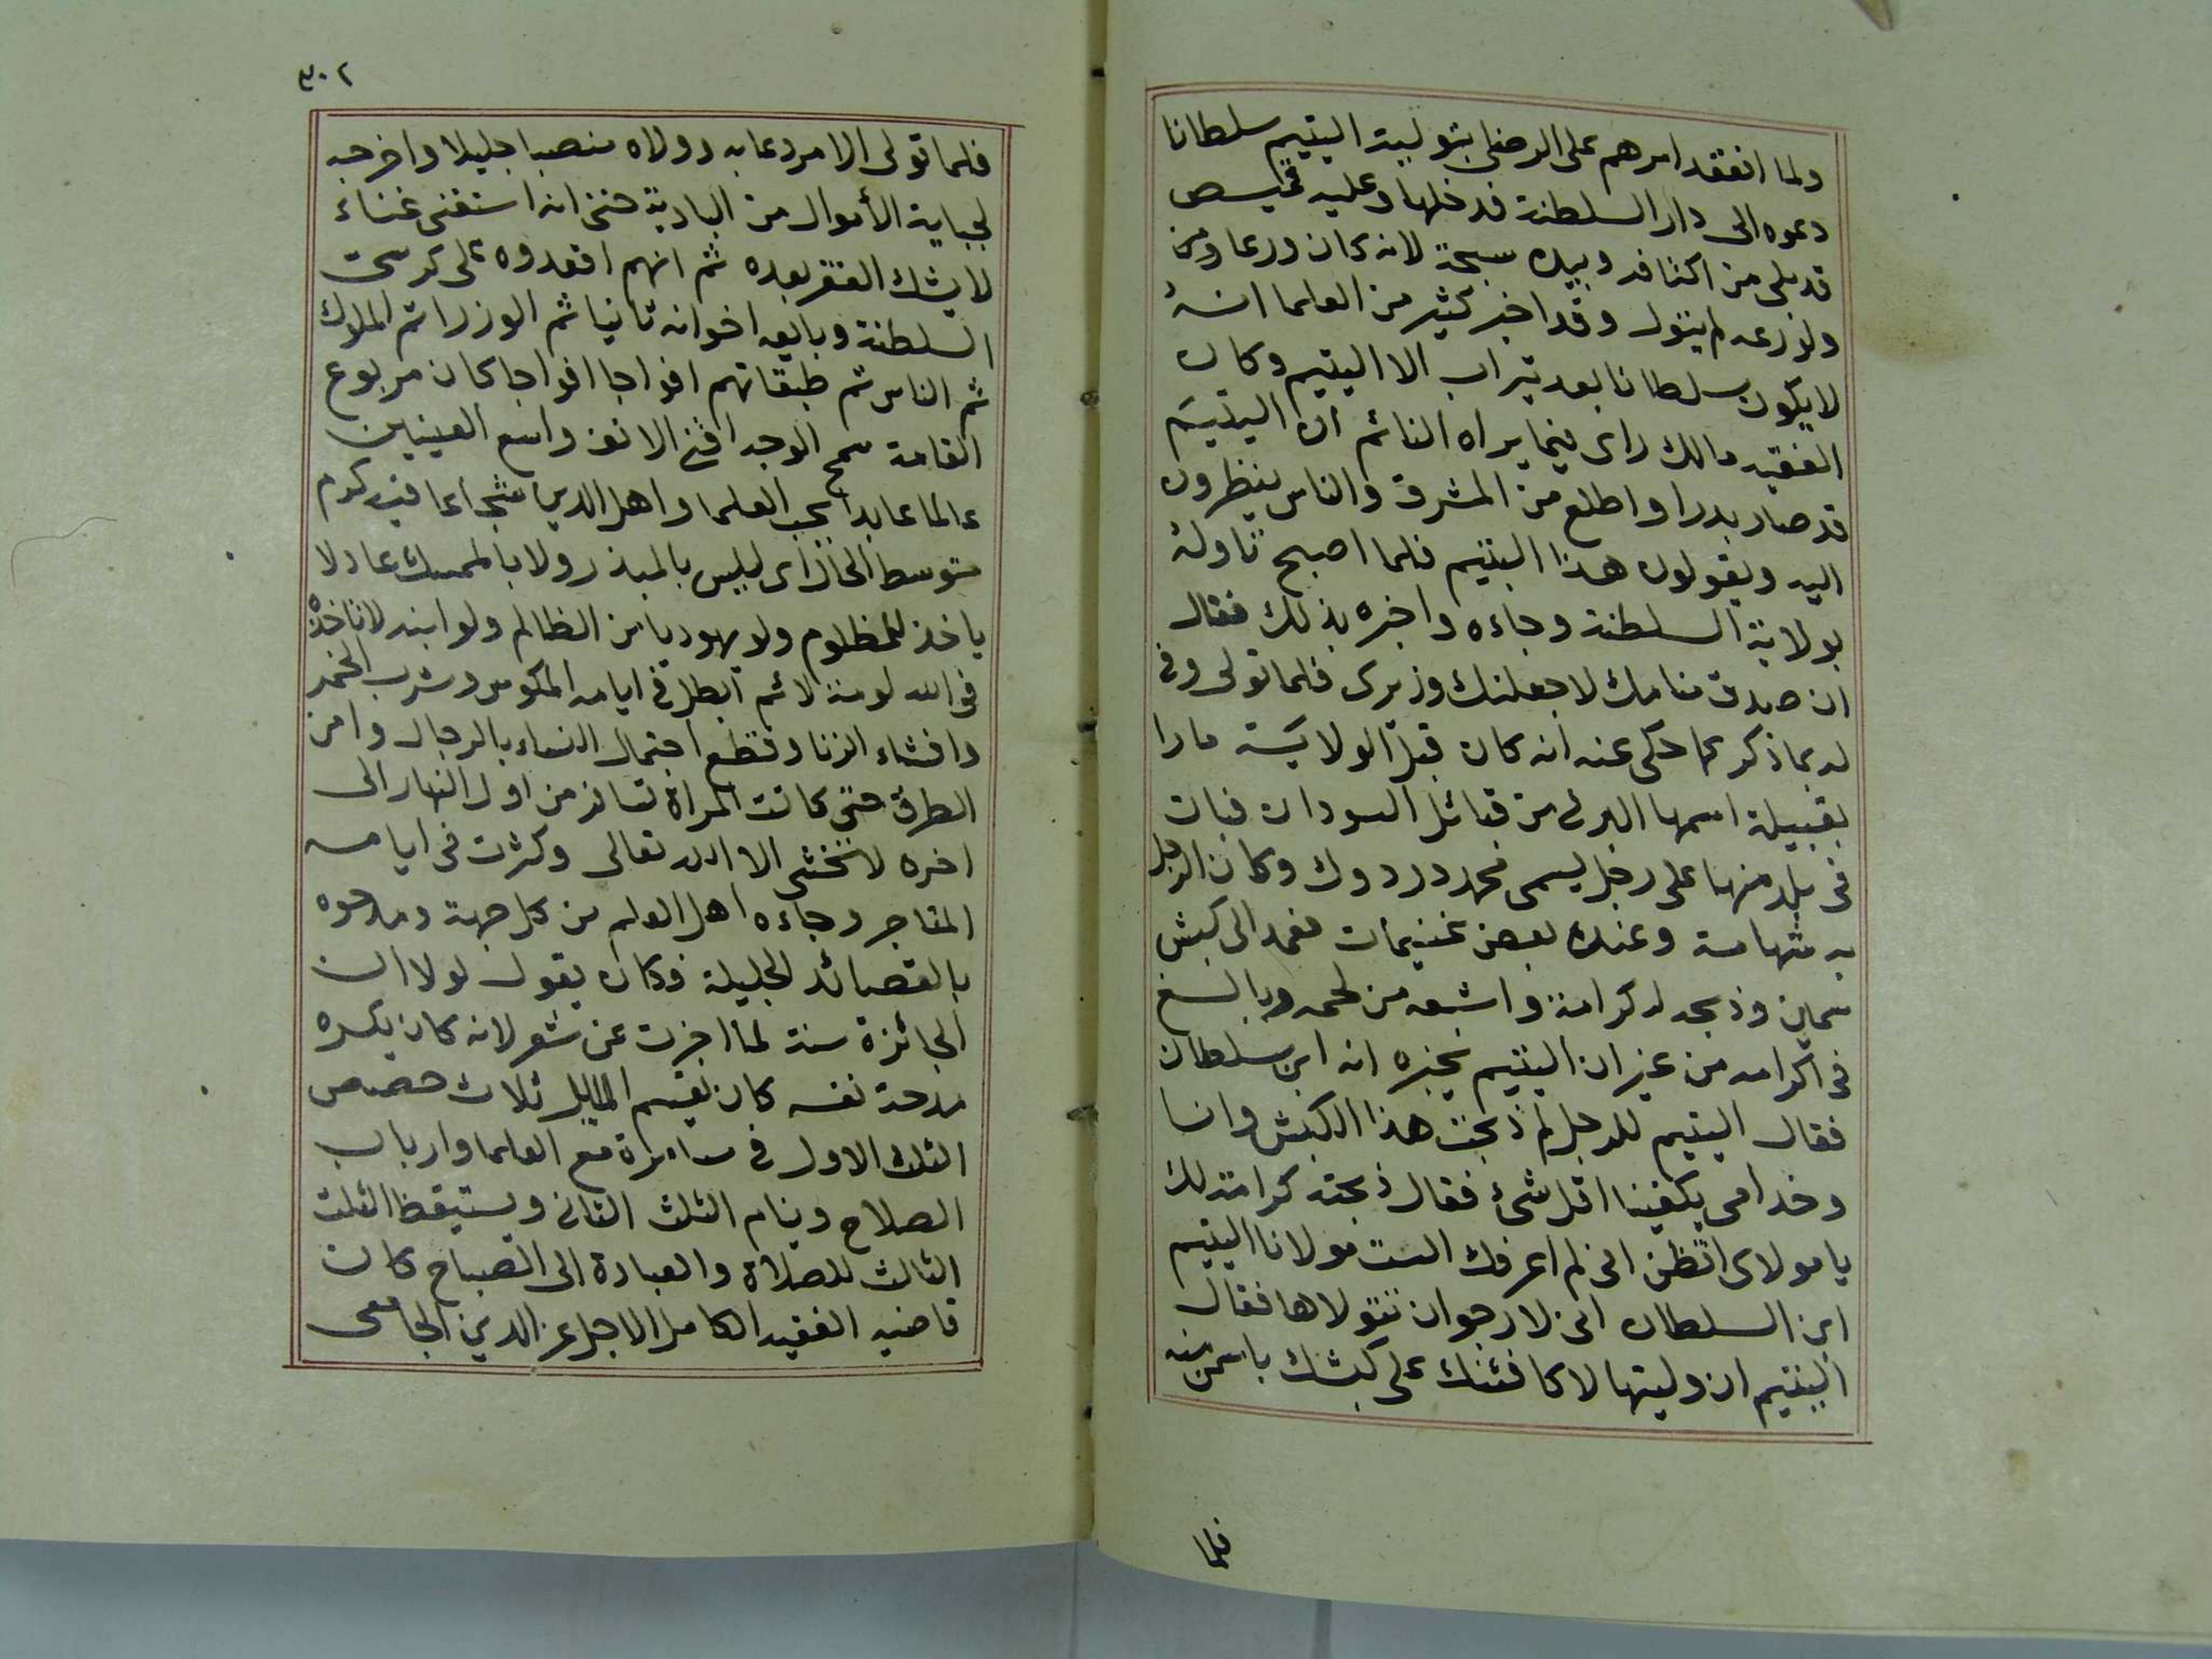 ولما انعقد امرهم على الرضى بتولية اليتيم سلطانا
دعوه الى دار السلطنة فدخلها وعليه قميص
قد بلى من اكتافه وبيده سبحة لانه كان ورعا ومن
ولورعه لم يتول وقد اخبر كثير من العلما انهٔ
لا يكون سلطانا بعد تيراب الا اليتيم وكان
الفقيه مالك راى فيما يراه النائم ان اليتيم
قد صار بدرا واطلع من المشرق والناس ينظرون
اليه ويقولون هذا اليتيم فلما اصبح تاوله
بولاية السلطنة وجاءه واخبره بذلك فقال
ان صدق منامك لاجعلنك وزيرى فلما تولى وفى
له بما ذكر مما حكى عنه انه كان قبل الولاية مارا
بقبيلة اسمها البرتى من قبائل السودان فبات
فى بلد منها على رجل يسمى محمد دردوك وكان الرجل
به شهامة وعنده بعض غنيمات فعمد الى كبش
سمين وذبحه له كرامة واشبعه من لحمه وبالغ
فى اكرامه من غير ان اليتيم يخبره انه ابن سلطان
فقال اليتيم للرجل لم ذبحت هذا الكبش وانا
وخدامى يكفينا اقل شئ فقال ذبحته كرامة لك
يا مولاى اتظن انى لم اعرفك الست مولانا اليتيم
ابن السلطان انى لارجوان تتولاها فقال
اليتيم ان وليتها لاكافئنك على كبشك باسمن منه
فلما
٣٠٢
فلما تولى الامر دعا به وولاه منصبا جليلا واخرجه
لجباية الأموال من البادية حتى انه استغنى غناء
لا يشك الفقر بعده ثم انهم اقعدوه على كرسى
السلطنة وبايعه اخوانه ثانيا ثم الوزرا ثم الملوك
ثم الناس ثم طبقاتهم افواجا افواجا كان مربوع
القامة سمح الوجه اقنى الانف واسع العينين
عالما عابدا يحب العلما واهل الدين شجاعا فيه كرم
متوسط الحال اى ليس بالمبذر ولا بالممسك عادلا
ياخذ للمظلوم ولو يهوديا من الظالم ولو ابنه لا تاخذه
فى الله لومة لائم ابطل فى ايامه المكوس وشرب الخمر
وافشاء الزنا وقطع احتمال النساء بالرجال وامن
الطرق حتى كانت المراة تسافر من اول النهار الى
اخره لا تخشى الا الله تعالى وكثرت فى ايامه
المتاجر وجاءه اهل العلم من كل جهة ومدحوه
بالقصائد الجليلة فكان يقول لولا ان
الجائزة سنة لما اجزت عن شعر لانه كان يكره
مدحة نفسه كان يقسم الليل ثلاث حصص
الثلث الاول فى مسامرة مع العلما وارباب
الصلاح وينام الثلث الثانى ويستيقظ الثلث
الثالث للصلاة والعبادة الى الصباح كان
قاضيه الفقيه الكامل الاجل عز الدين الجامعى